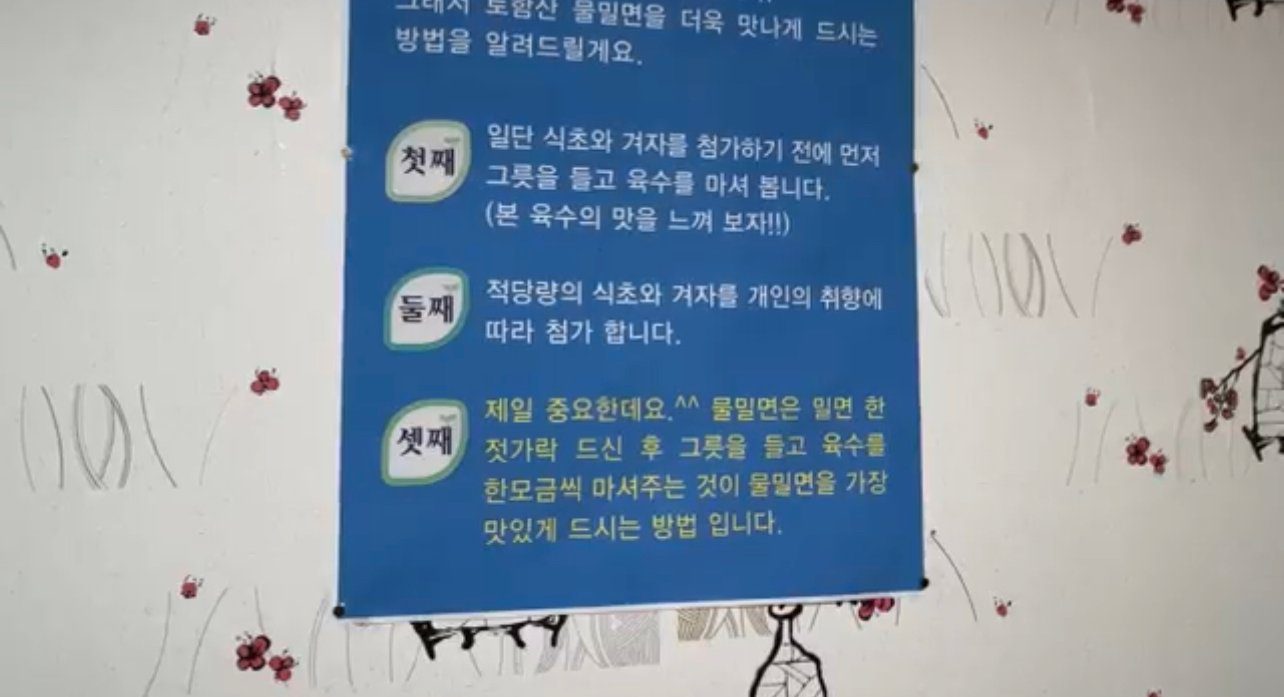 그래서 토함산 물밀면을 더욱 맛나게 드시는
방법을 알려드릴게요.
첫째
일단 식초와 겨자를 첨가하기 전에 먼저
그릇을 들고 육수를 마셔 봅니다.
(본 육수의 맛을 느껴 보자!!)
둘째
적당량의 식초와 겨자를 개인의 취향에
따라 첨가 합니다.
셋째
제일 중요한데요.^^ 물밀면은 밀면 한
젓가락 드신 후 그릇을 들고 육수를
한모금씩 마셔주는 것이 물밀면을 가장
맛있게 드시는 방법 입니다.